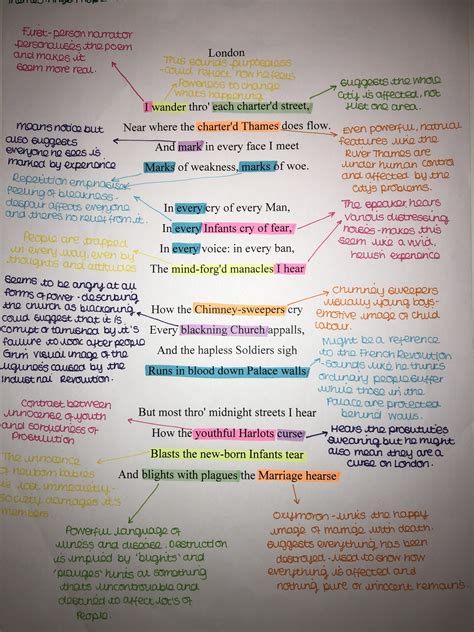 London
First-person narrator
personalises the poem
and makes it
seem more real.
This sounds purposeless
- could reflect how he feels
powerless to change
what's happening
suggests the whole
city is affected, not
just one area.
I wander thro' each charter'd street,
Near where the charter'd Thames does flow.
And mark in every face I meet
Marks of weakness, marks of woe.
means notice but
also suggests
everyone he sees is
marked by experience
Even powerful, natural
features like the
River Thames are
under human control
and affected by the
city's problems.
Repetition emphasises
feeling of bleakness.
despair affects everyone
and there's no relief from it.
In every cry of every Man,
In every Infants cry of fear,
In every voice: in every ban,
The mind-forg'd manacles I hear
The speaker hears
various distressing
noises - makes this
seem like a vivid,
hellish experience
People are trapped
in every way, even by
thoughts and attitudes
Seems to be angry at all
forms of power - describing
the church as blackening
could suggest that it is
corrupt or tarnished by it's
failure to look after people
Grim visual image of the
ugliness caused by the
Industrial Revolution.
How the Chimney-sweepers cry
Every blackning Church appalls,
And the hapless Soldiers sigh
Runs in blood down Palace walls
chimney sweepers
usually young boys-
emotive image of child
labour.
Might be a reference
to the French Revolution
- sounds like he thinks
ordinary people suffer
while those in the
Palace are protected
behind walls.
Contrast between
innocence of youth
and sordidness of
Prostitution
But most thro' midnight streets I hear
How the youthful Harlots curse
Blasts the new-born Infants tear
And blights with plagues the Marriage hearse
Hears the prostitutes
swearing but he might
also mean they are a
curse on London.
The innocence
of newborn babies
is lost immediately-
society damages it's
members.
Powerful language of
illness and disease. Destruction
is implied by 'blights' and
'plagues' hints at something
that's uncontrollable and
destined to affect lot's of
People.
Oxymoron - links the happy
image of marriage with death.
suggests everything has been
destroyed - used to show how
everything is affected and
nothing pure or innocent remains.